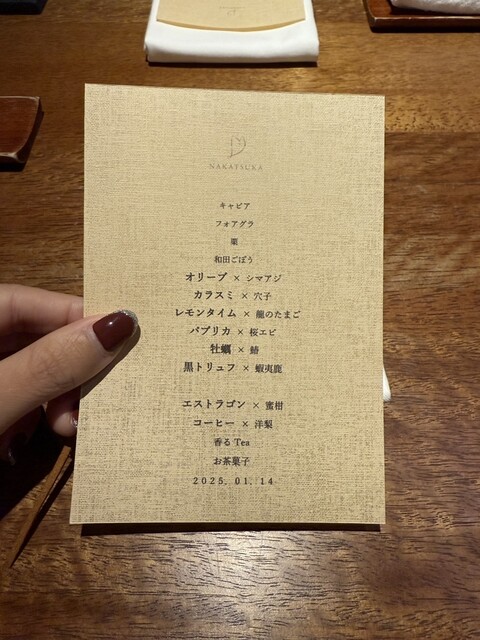 NAKATSUKA
キャビア
フォアグラ
栗
和田ごぼう
オリーブ × シマアジ
カラスミ × 穴子
レモンタイム × 龍のたまご
パプリカ × 桜エビ
牡蠣 × 鰆
黒トリュフ × 蝦夷鹿
エストラゴン × 蜜柑
コーヒー × 洋梨
香る Tea
お茶菓子
2025. 01. 14